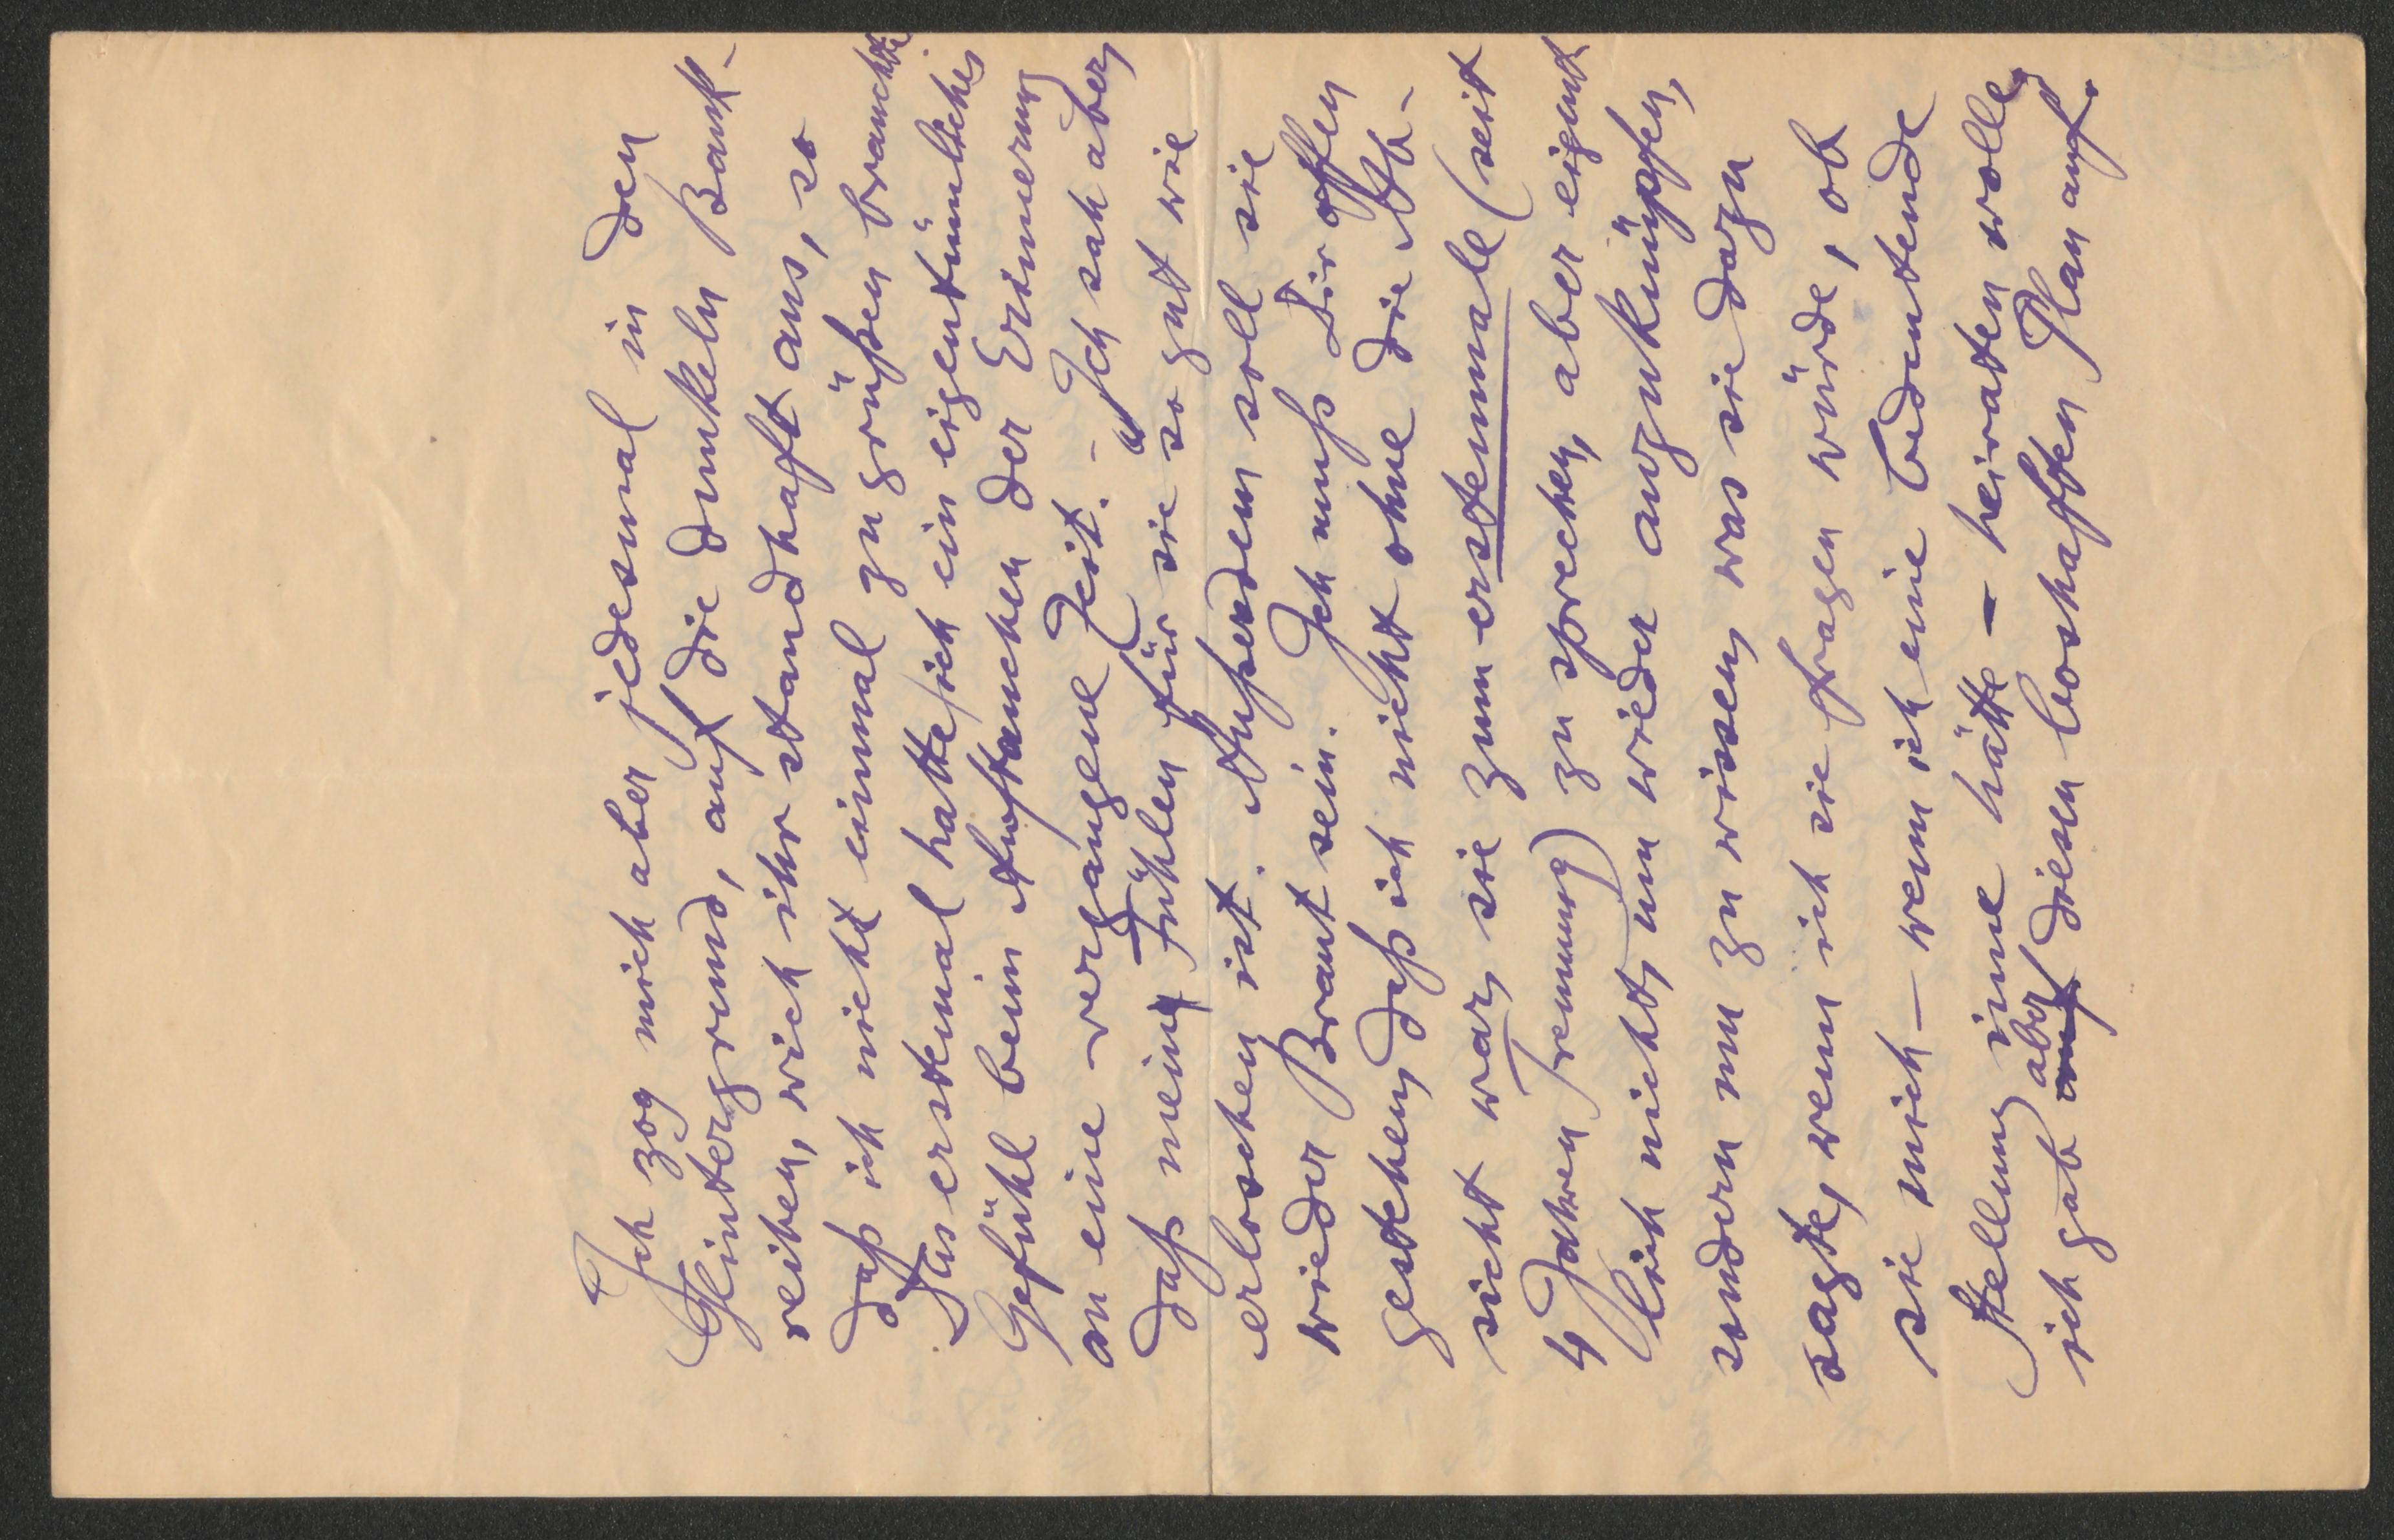 Ich zog mich aber jedesmal in den
Hintergrund, auf die dunkeln Bank-
reihen, wich ihr standhaft aus, so
daß ich nicht einmal zu grüßen brauchte.
Das erstemal hatte ich ein eigentümliches
Gefühl beim Auftauchen der Erinnerung
an eine vergangene Zeit. - Ich sah aber,
daß mein Fühlen für sie so gut wie
erloschen ist. Außerdem soll sie
wieder Braut sein. Ich muß Dir offen
gestehen, daß ich nicht ohne die Ab-
sicht war, sie zum erstenmale (seit
4 Jahren Trennung) zu sprechen, aber eigent
lich nicht, um wieder anzuknüpfen,
sondern um zu wissen, was sie dazu
sagte, wenn ich sie fragen würde, ob
sie mich – wenn ich eine bedeutende
Stellung inne hätte – heiraten wolle,
ich gab aber diesen boshaften Plan auf.